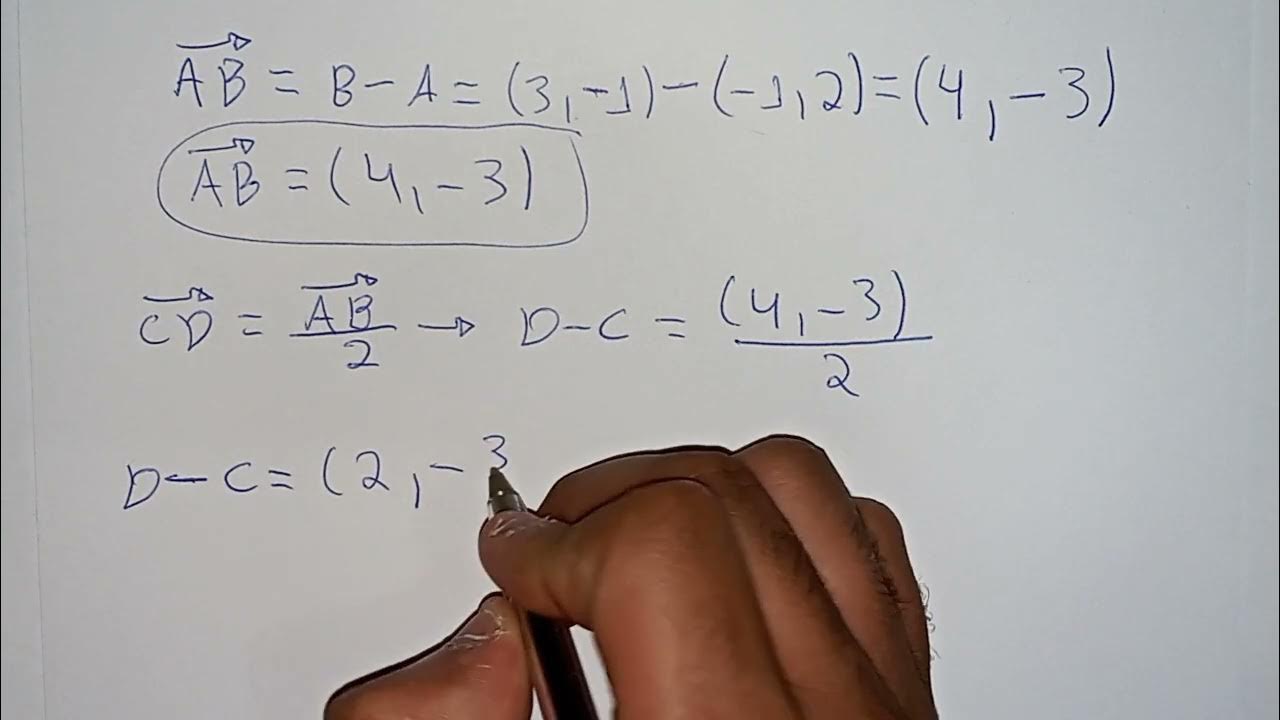 AB = B - A = (3, -1) - (-1, 2) = (4, -3)
AB = (4, -3)
CD = AB/2 → D - C = (4, -3)/2
D - C = (2, -3